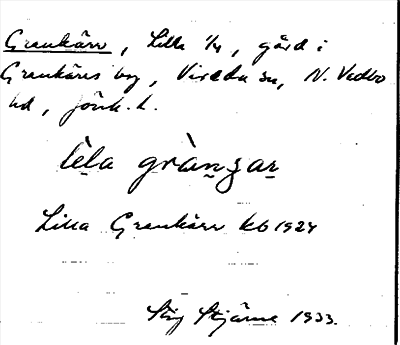 Grankärr, Lilla 1/4, gård i
Grankärrs by, Vireda sn, N. Vedbo
hd, Jönk. l.
lèla gràn̠ʒar̠
Lilla Grankärr kb 1924
Stig Stjärne 1933.